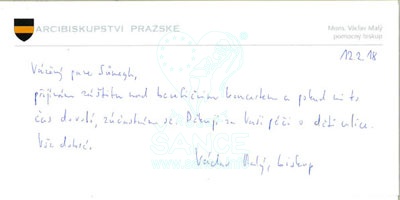 ARCIBISKUPSTVÍ PRAŽSKÉ
Mons. Václav Malý
pomocný biskup
12.2.18
Vážený pane
přijímám záštitu nad benefičním koncertem a pokud mi to
čas dovolí, zúčastním se. Děkuji za Vaši péči o děti ulice.
Vše dobré.
Václav Malý, biskup